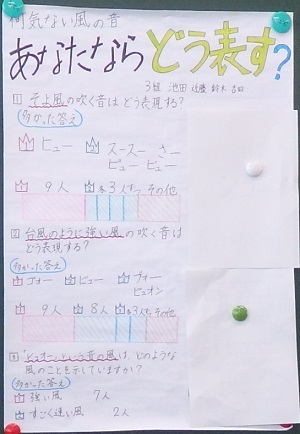 何気ない風の音
あなたならどう表す?
3組 池田 近藤 鈴木 吉田
1 そよ風の吹く音はどう表現する?
多かった答え
1 ヒュー 2 スースー さー
ピュー ヒュー
1 9人 2 各3人ずつ その他
2 台風のように強い風の吹く音は
どう表現する?
多かった答え
1 ゴォー 2 ヒュー 3 ブォー
ビュオン
1 9人 2 8人 3 各3人ずつ その他
"ビュオー"という音の風は、どのような
風のことを示していますか?
多かった答え
1 強い風 7人
2 すごく速い風 2人